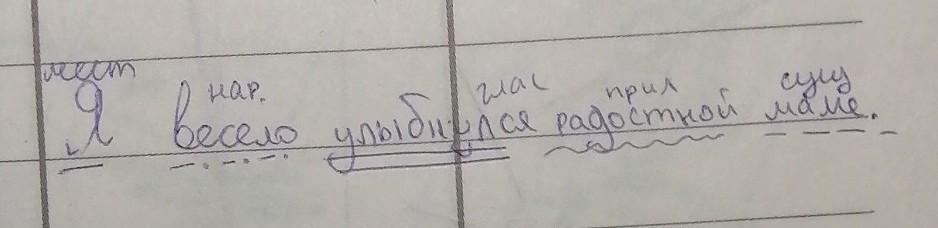 мест нар. глас прил сущ
Я весело улыбнулся радостной маме.